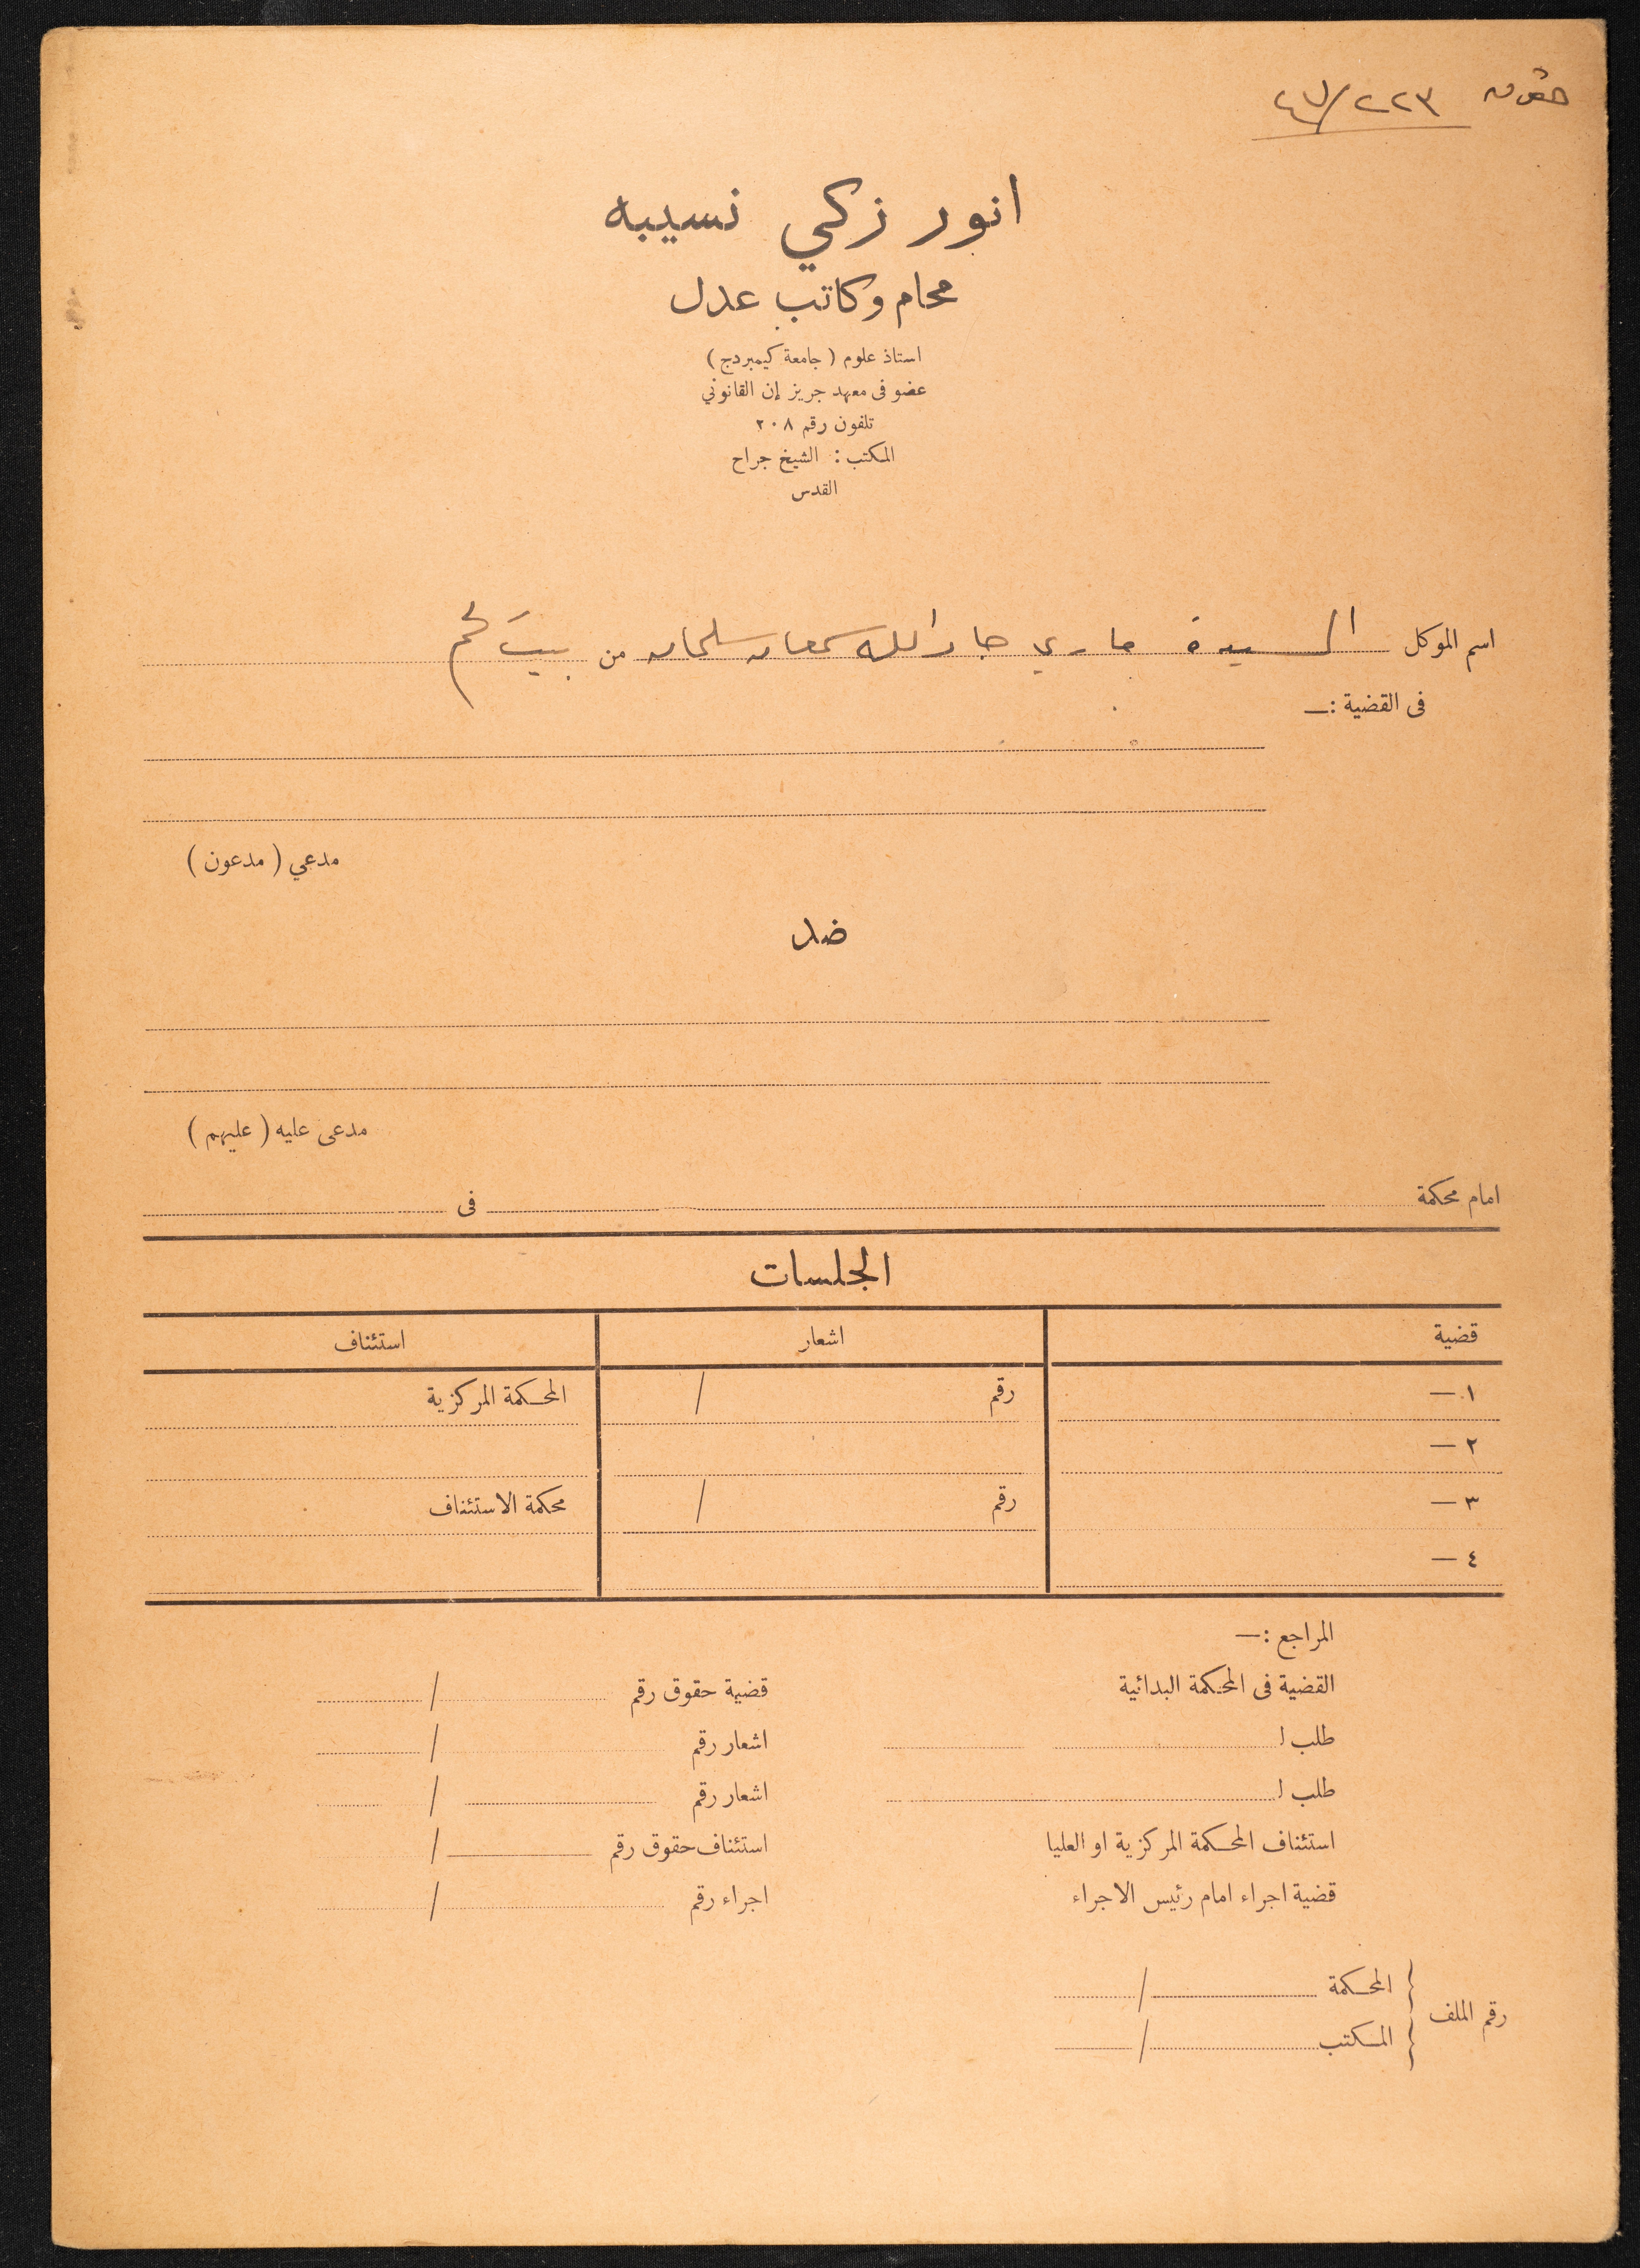 حقوق ٢٢٣/٤٧
انور زكي نسيبه
محام وكاتب عدل
استاذ علوم (جامعة كيمبردج)
عضو فى معهد جريز إن القانوني
تلفون رقم ٢٠٨
المكتب : الشيخ جراح
القدس
اسم الموكل السيدة ماري جاد الله سمعان سلمان من بيت لحم
فى القضية :—
مدعي (مدعون)
ضد
مدعى عليه (عليهم)
امام محكمة فى
الجلسات
قضية اشعار استئناف
١ — رقم / المحكمة المركزية
٢ —
٣ — رقم / محكمة الاستئناف
٤ —
المراجع :—
القضية فى المحكمة البدائية قضية حقوق رقم /
طلب لـ اشعار رقم /
طلب لـ اشعار رقم /
استئناف المحكمة المركزية او العليا استئناف حقوق رقم /
قضية اجراء امام رئيس الاجراء اجراء رقم /
رقم الملف { المحكمة /
{ المكتب /